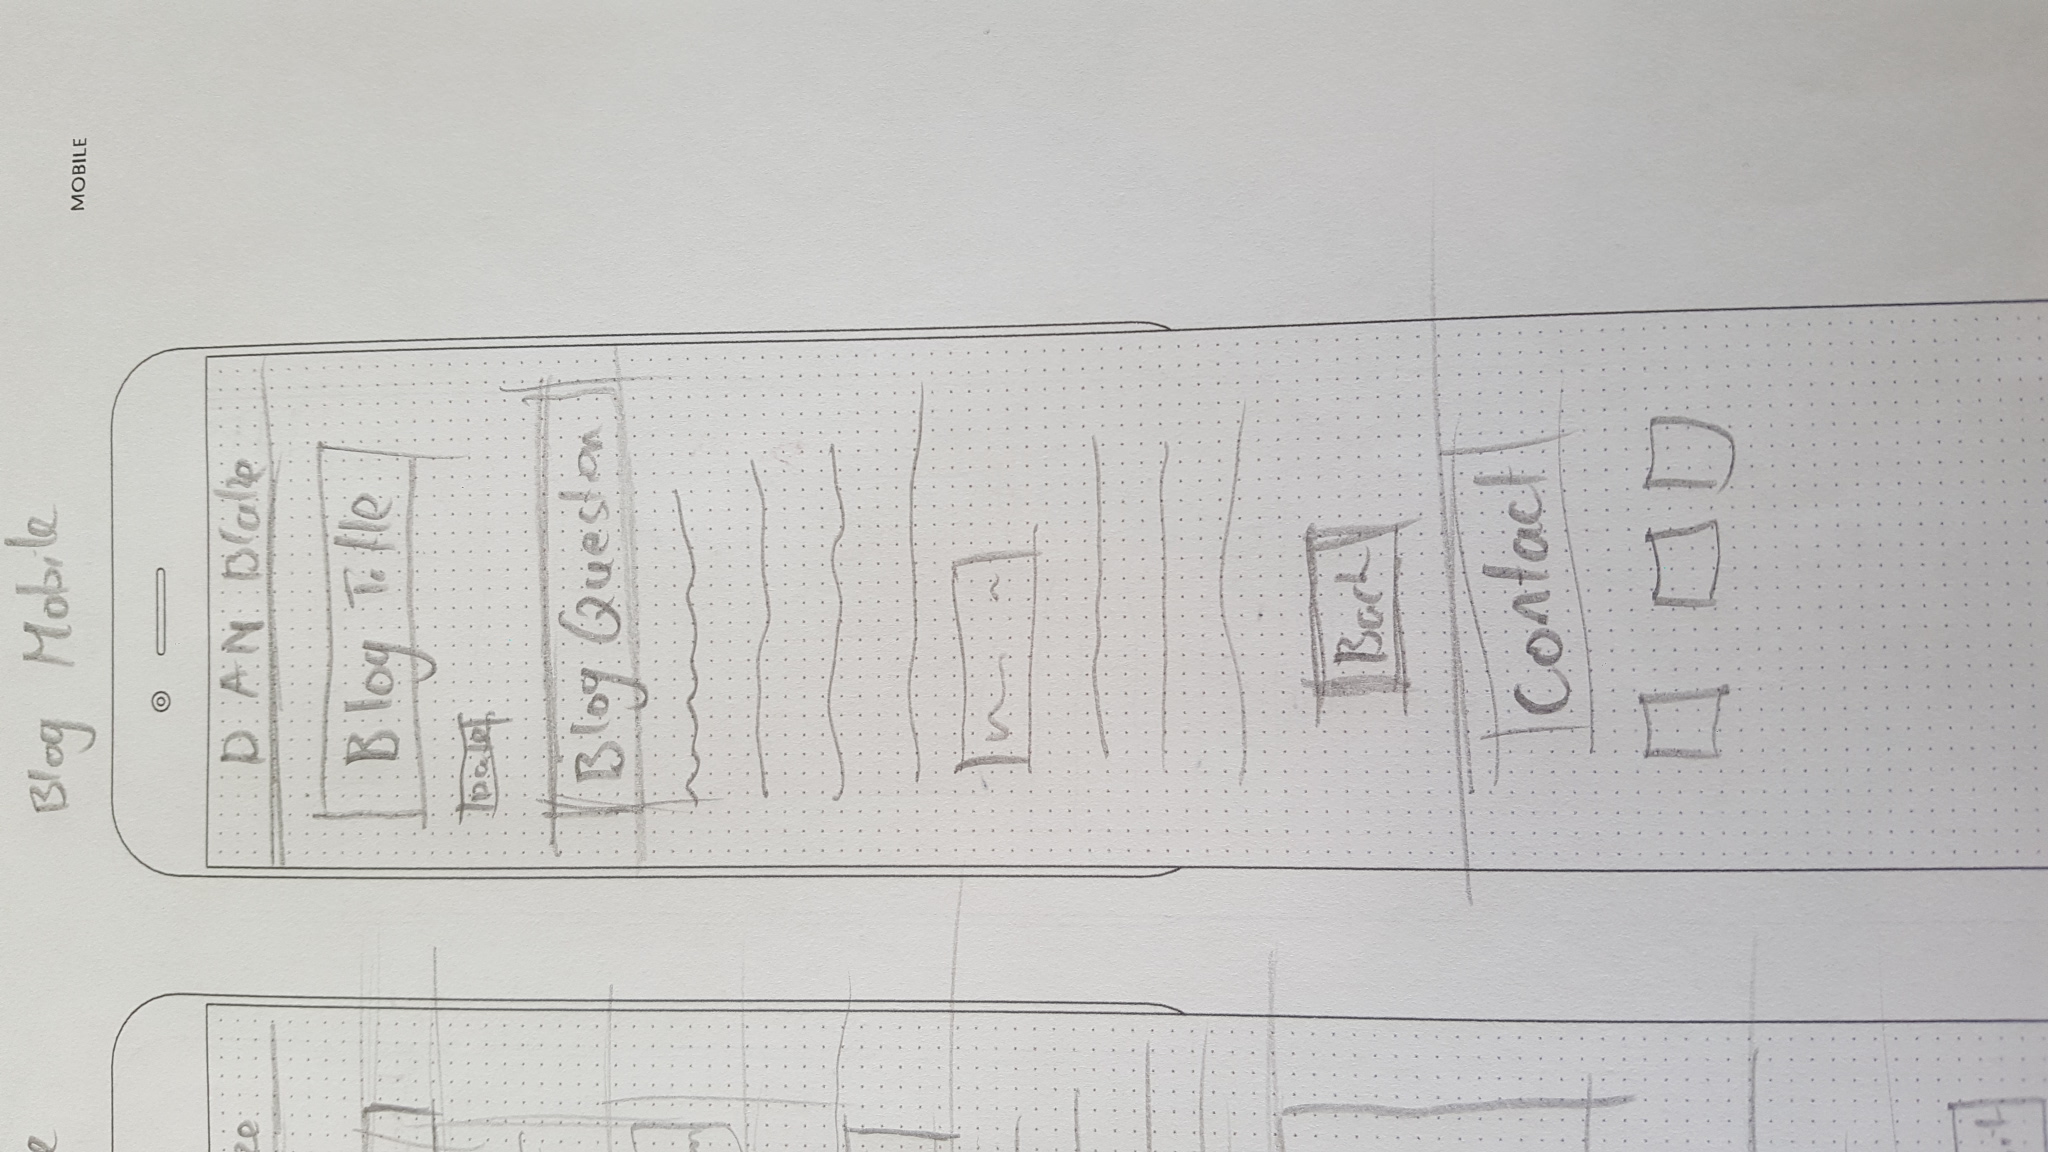 Blog Mobile
MOBILE
DAN Blake
Blog Title
Date
Blog Question
Back
Contact